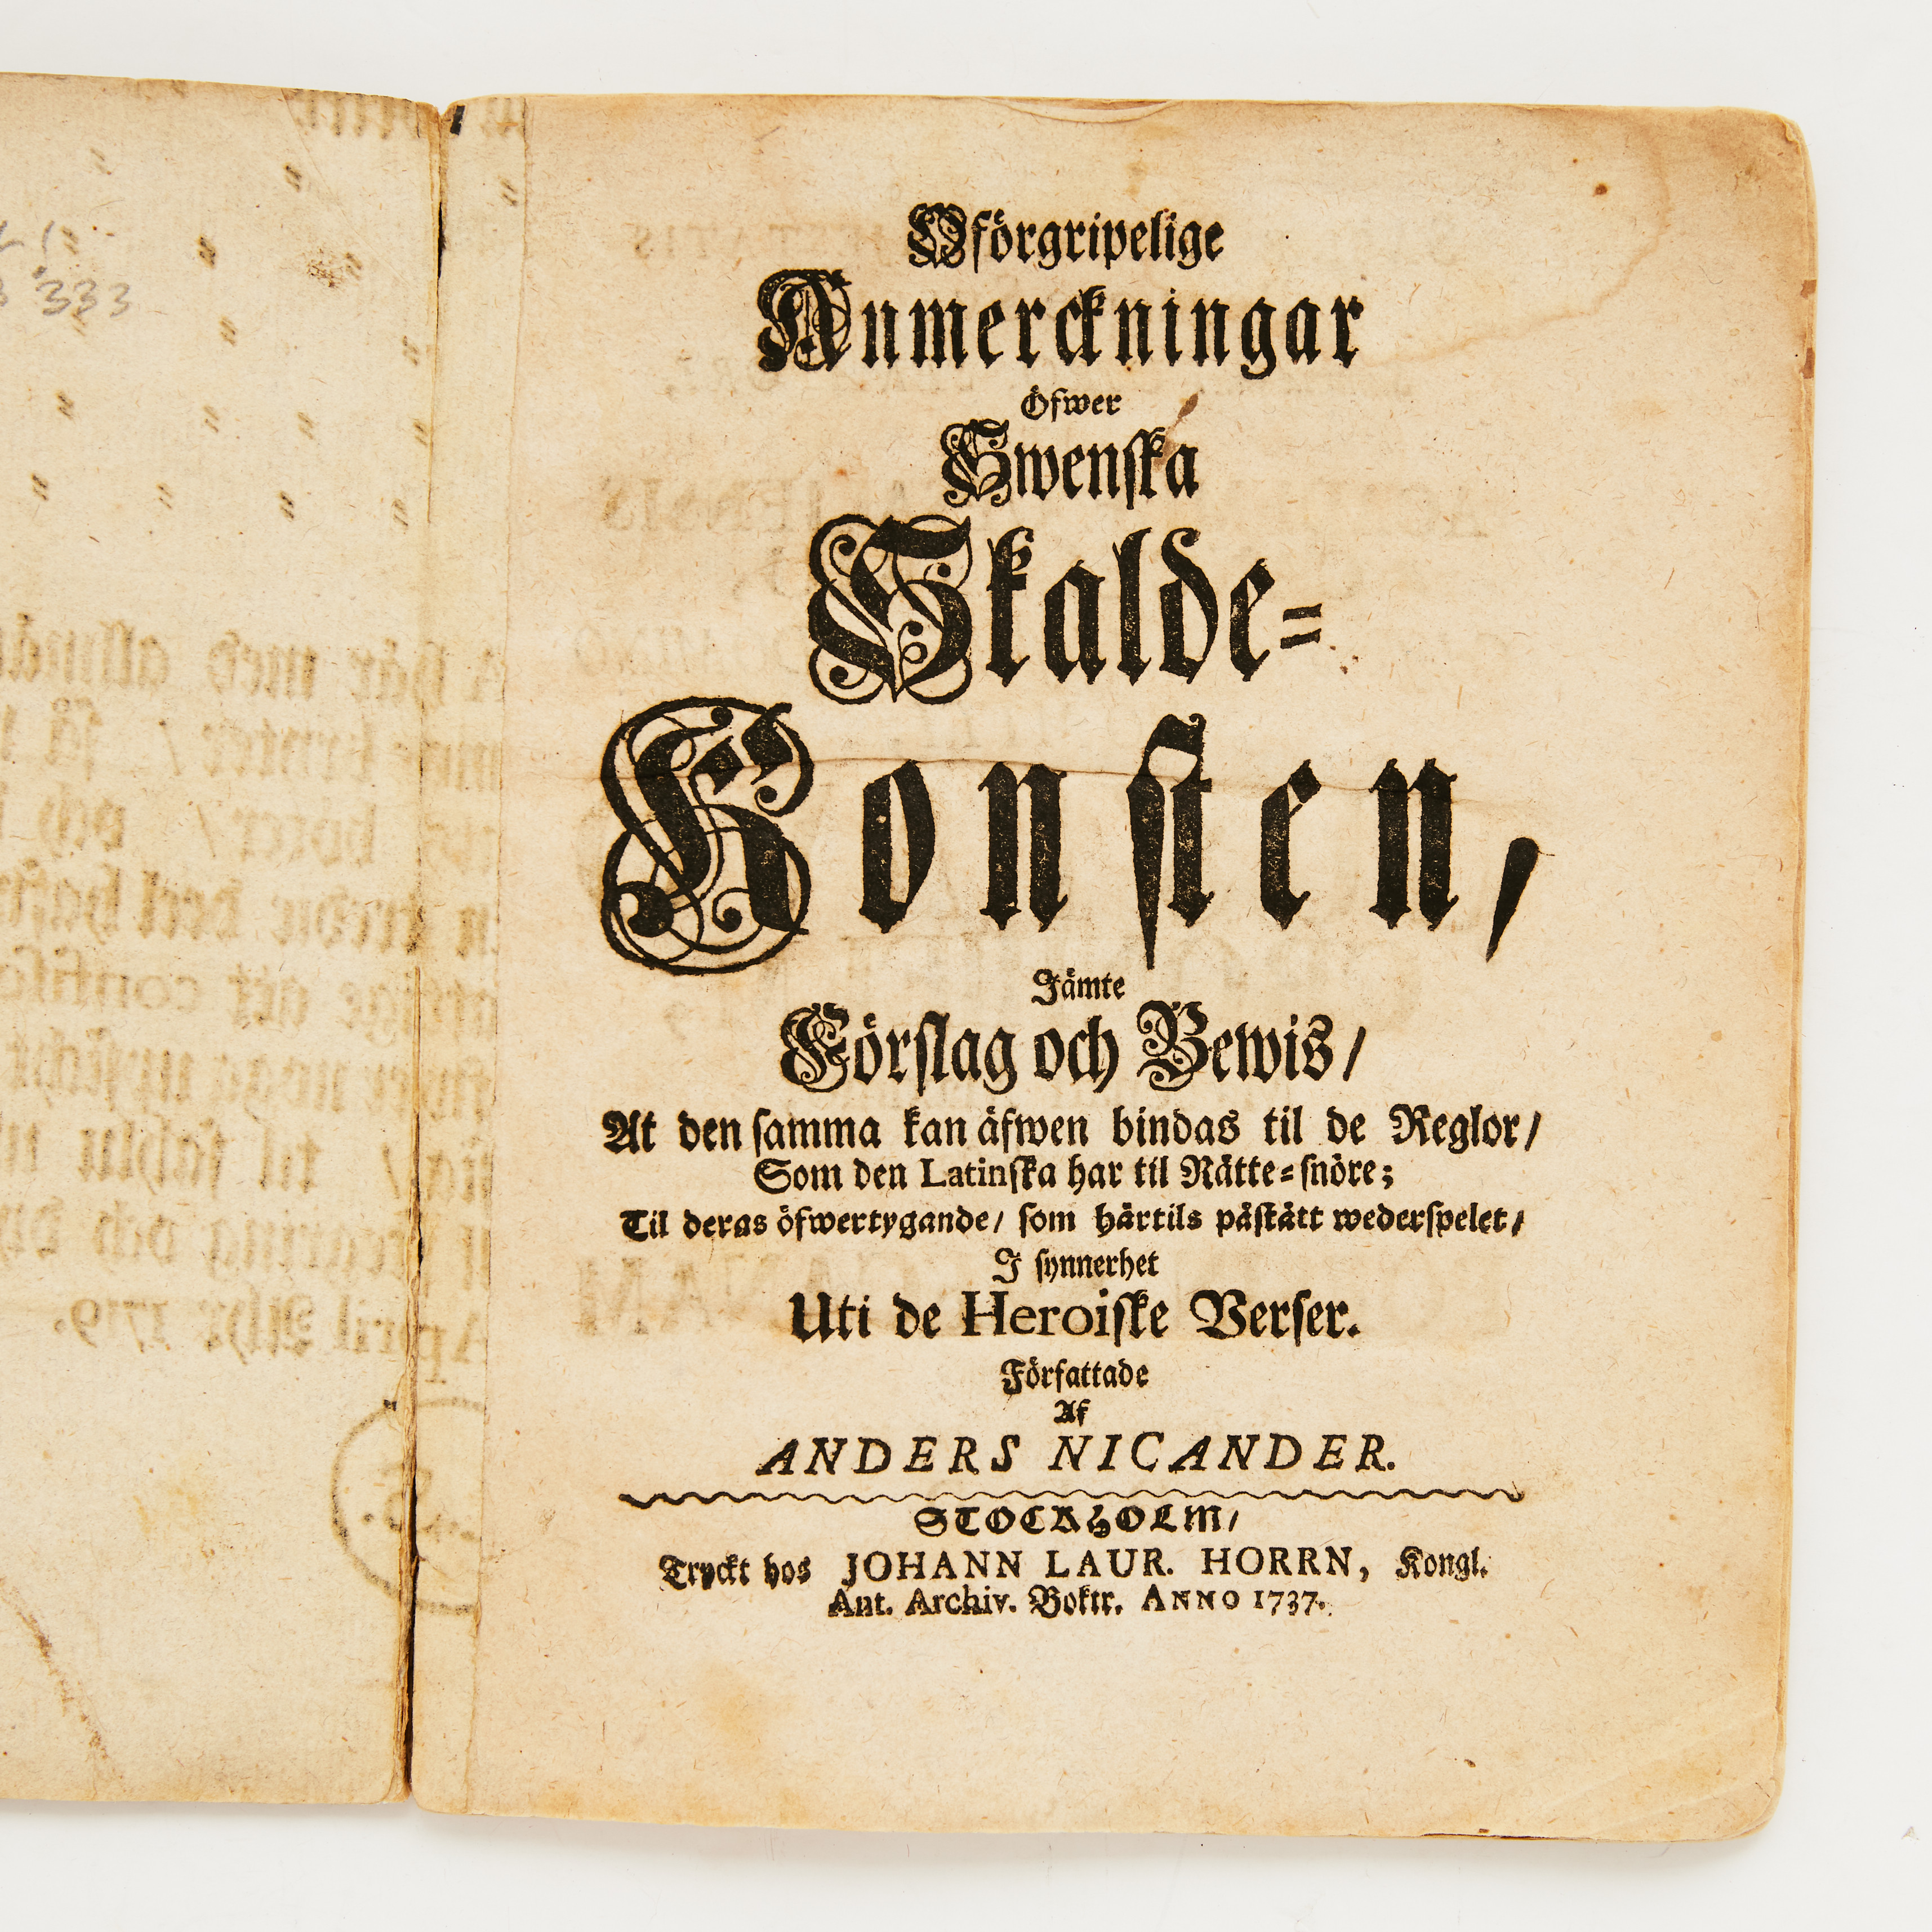 333
Oförgripelige
Anmerckningar
Öfwer
Swenska
Skalde=
Konsten,
Jämte
Förslag och Bewis/
At den samma kan äfwen bindas til de Reglor/
Som den Latinska har til Rätte=snöre;
Til deras öfwertygande/ som härtils påstått wederspelet/
I synnerhet
Uti de Heroiske Verser.
Författade
Af
ANDERS NICANDER.
STOCKHOLM/
Tryckt hos JOHANN LAUR. HORRN, Kongl.
Ant. Archiv. Boktr. ANNO 1737.